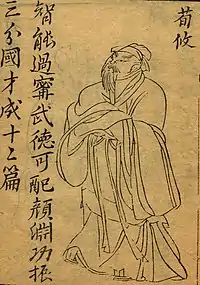 荀攸
智能過甯武德可配顏淵功振
三分國才成十二篇